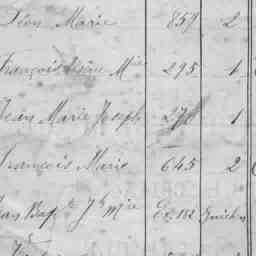 Léon Marie 859 2
François Mie 295 1
Jean Marie Joseph 27 1
François Marie 645 2
Jean Bapte Jh Mie Ex 182